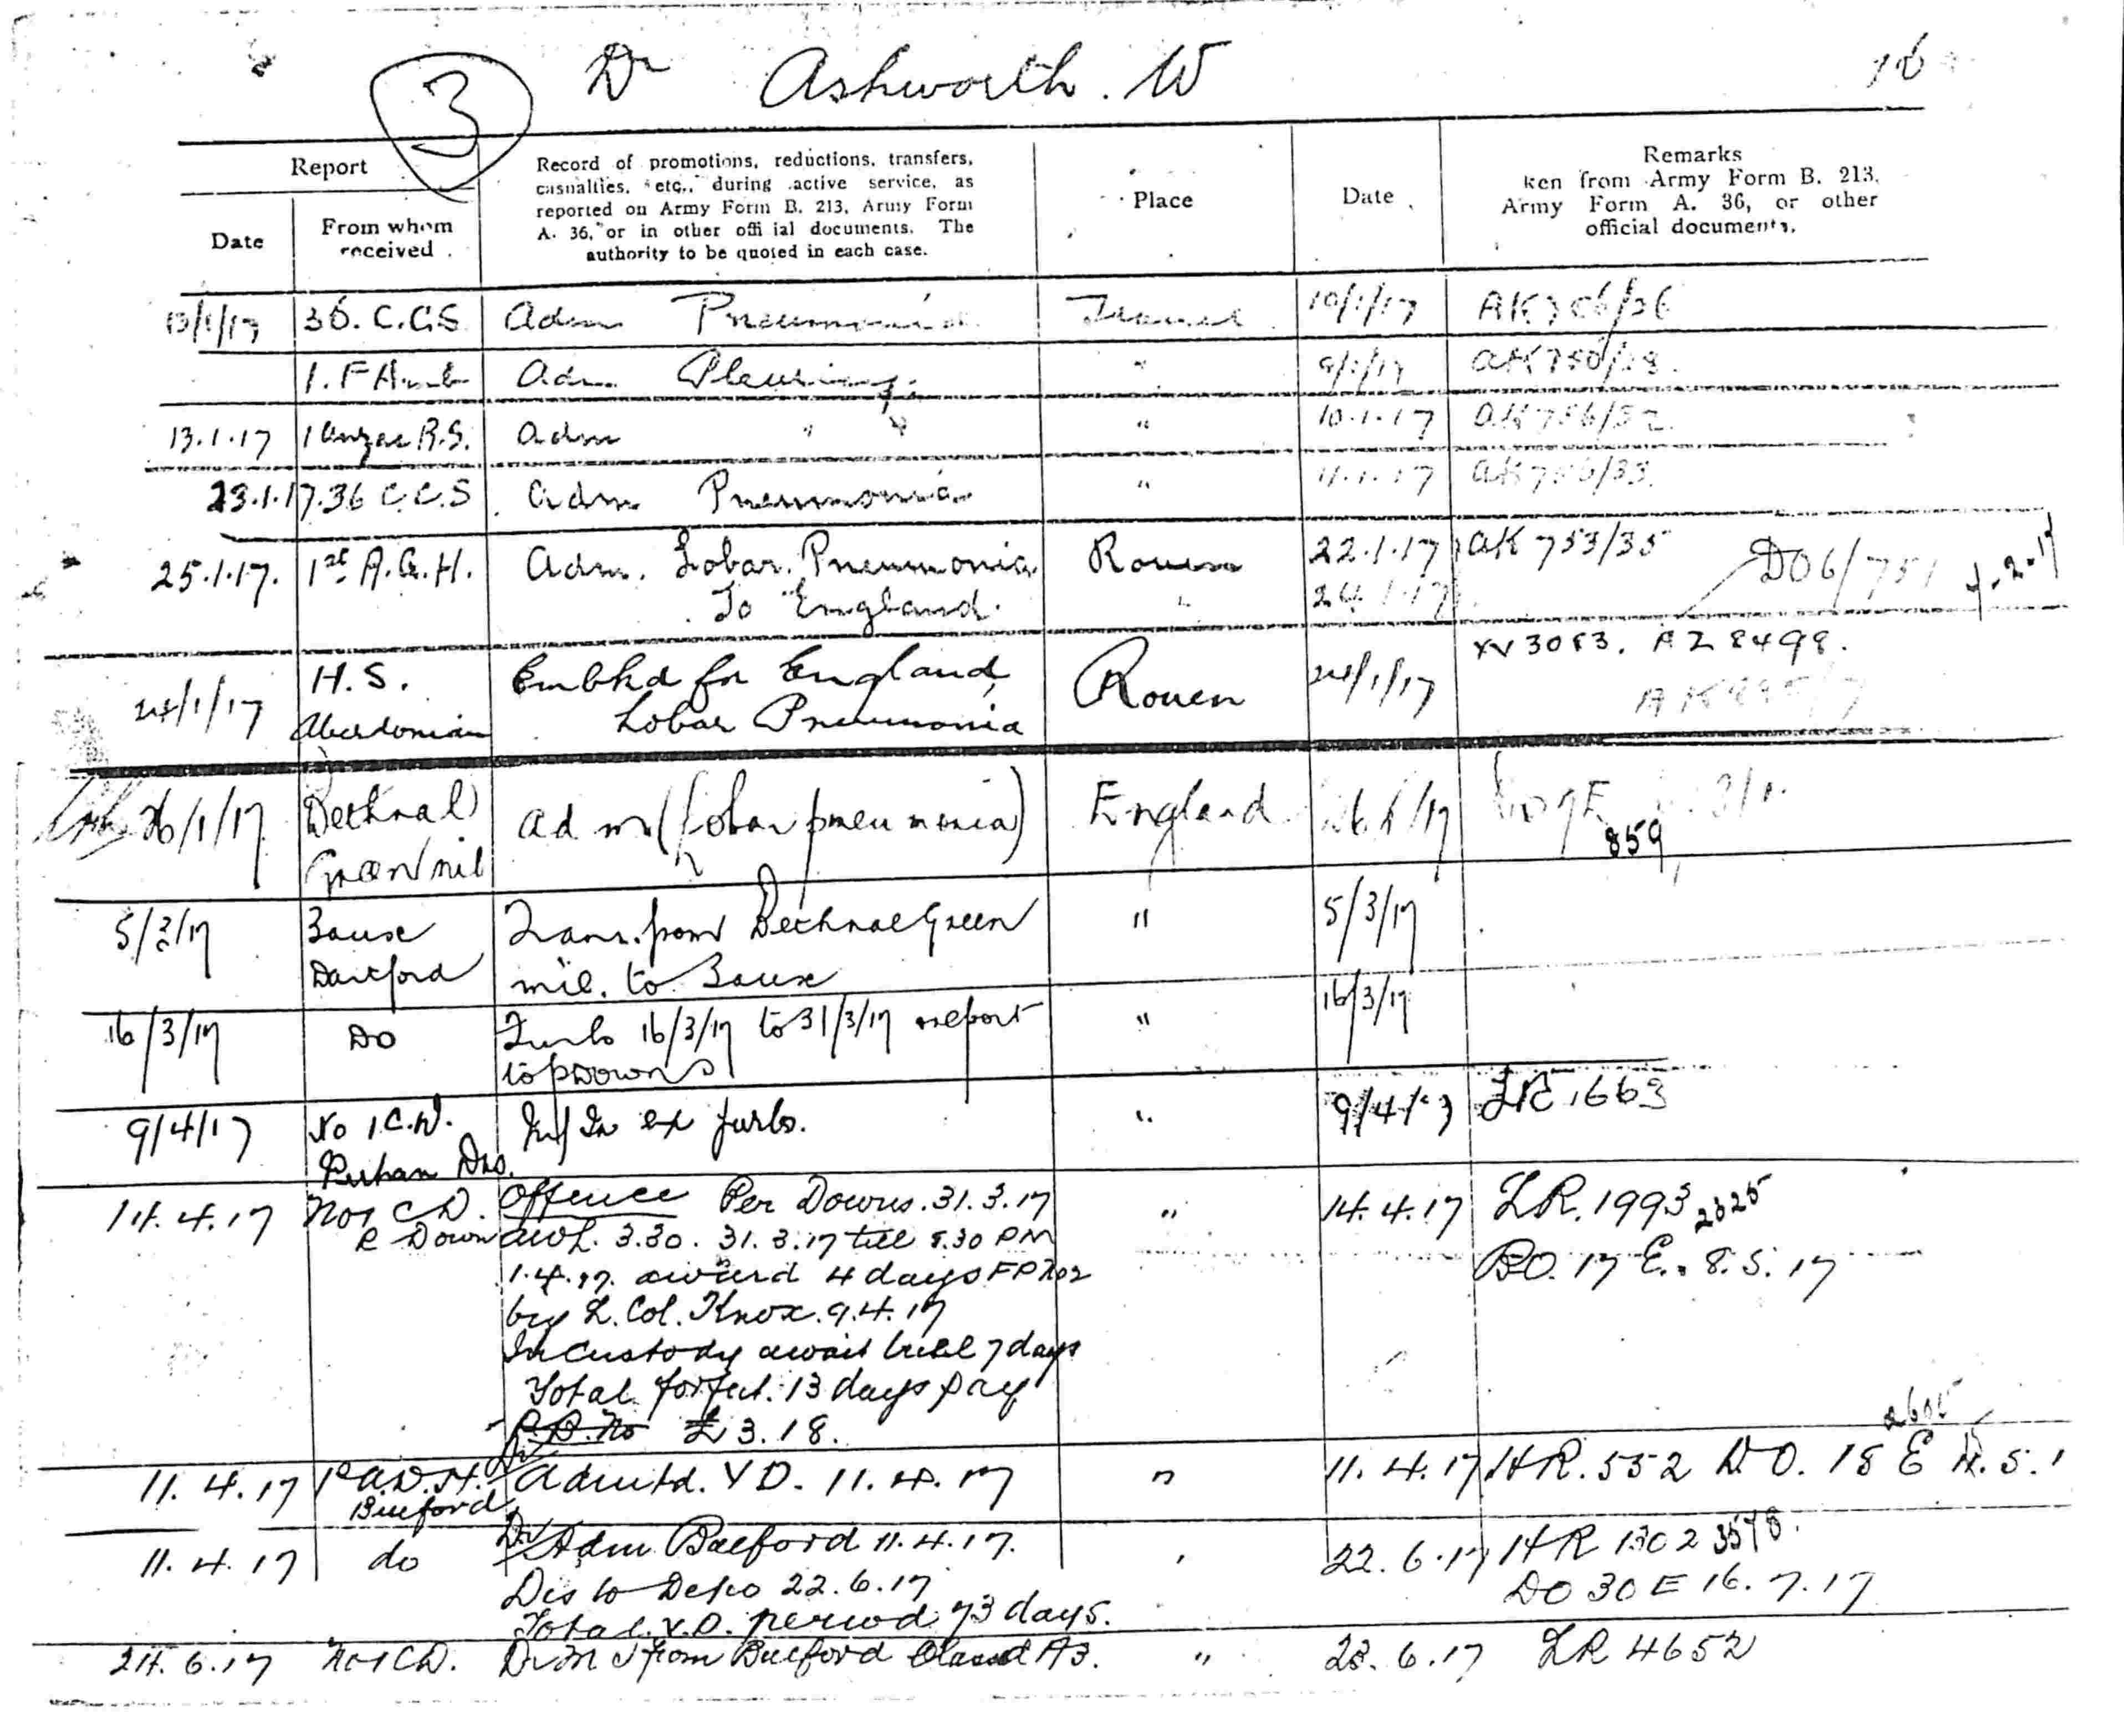 3
Dr Ashworth. W
16
Report
Date
From whom received
Record of promotions, reductions, transfers,
casualties, etc., during active service, as
reported on Army Form B. 213, Army Form
A. 36, or in other offi ial documents. The
authority to be quoted in each case.
Place
Date
Remarks
ken from Army Form B. 213,
Army Form A. 36, or other
official documents.
13/1/17 36. C.C.S Adm Pneumonia France 10/1/17
Adm Pleurisy " 9/1/17
13.1.17 1 Anzac R.S. Adm " " " 10.1.17
23.1.17 36 C.C.S Adm Pneumonia " 11.1.17
25.1.17. 1st A.G.H. Adm. Lobar. Pneumonia Rouen 22.1.17 AK 753/35
To England. " 24.1.17 DO6/751 4.2.17
W 3083. AZ 8498.
24/1/17 H.S. Embkd for England Rouen 24/1/17
Aberdonian Lobar Pneumonia
26/1/17 Bethnal Adm (Lobar pneumonia) England 26/1/17
Green Mil 859
5/3/17 3 aux Trans. from Bethnal Green " 5/3/17
Dartford mil. to 3 aux
16/3/17 Do Furlo 16/3/17 to 31/3/17 report " 16/3/17
to P Downs
9/4/17 No 1 C.D. M/In ex furlo. " 9/4/17 LR 1663
Perham Dns.
14.4.17 No 1 C D. Offence Per Downs. 31.3.17 " 14.4.17 LR. 1993 2325
P Down AWL. 3.30. 31.3.17 till 8.30 PM
1.4.17. award 4 days FP No 2 DO. 17 E. 8.5.17
by L. Col. Knox. 9.4.17
In custody await trial 7 days
Total forfeit. 13 days pay
£3.18.
11.4.17 1st A.D.H. Admtd. VD. 11.4.17 " 11.4.17 HR. 552 DO. 18 E
Bulford
11.4.17 do Adm Bulford 11.4.17. 22.6.17 HR 1302
Dis to Depo 22.6.17 DO 30 E 16.7.17
Total. V.D. period 73 days.
24.6.17 No 1 CD. from Bulford Classed A3. " 23.6.17 LR 4652